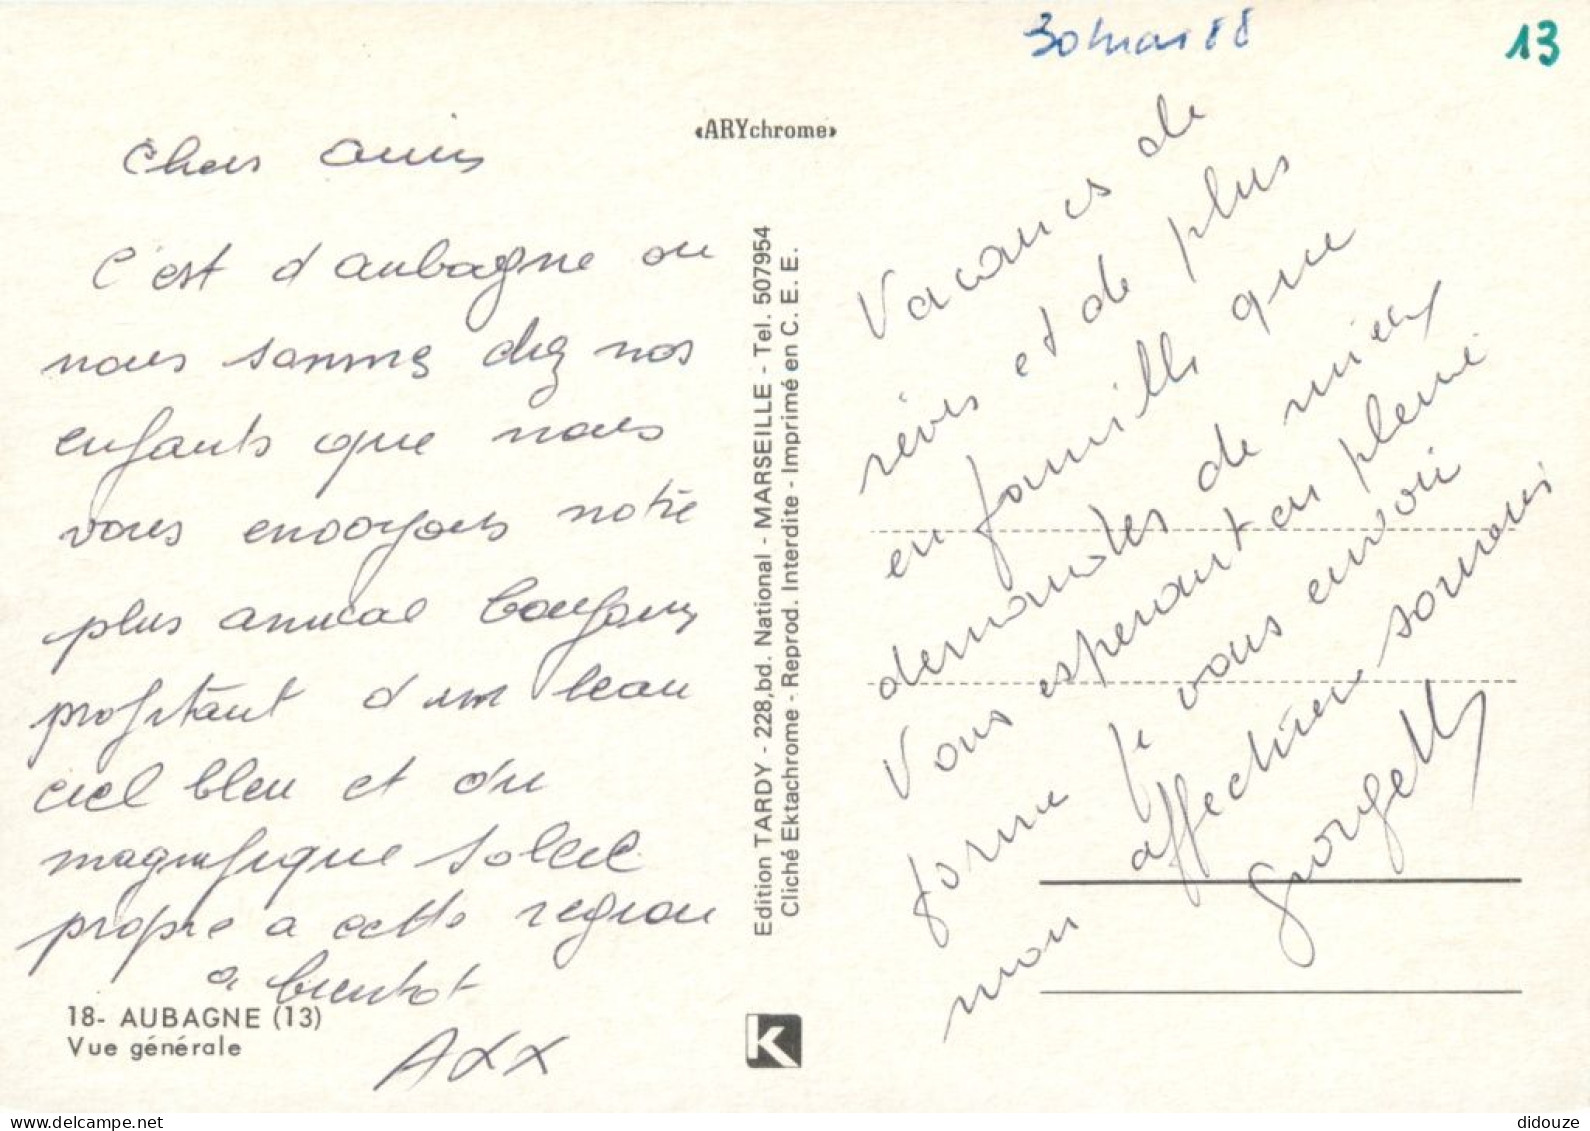 30 mar 88
13
«ARYchrome»
Chers amis
C'est d'aubagne ou
nous sommes chez nos
enfants que nous
vous envoyons notre
plus amical bonjour
profitant d'un beau
ciel bleu et du
magnifique soleil
propre a cette region
a bientot
18- AUBAGNE (13)
Vue générale
Edition TARDY - 228,bd. National - MARSEILLE - Tel. 507954
Cliché Ektachrome - Reprod. Interdite - Imprimé en C. E. E.
K
Vacances de
rêves et de plus
en famille que
demandes de mieux
Vous esperant en pleine
forme je vous envoie
mon affectueux souvenir
Georgette
delcampe.net
didouze